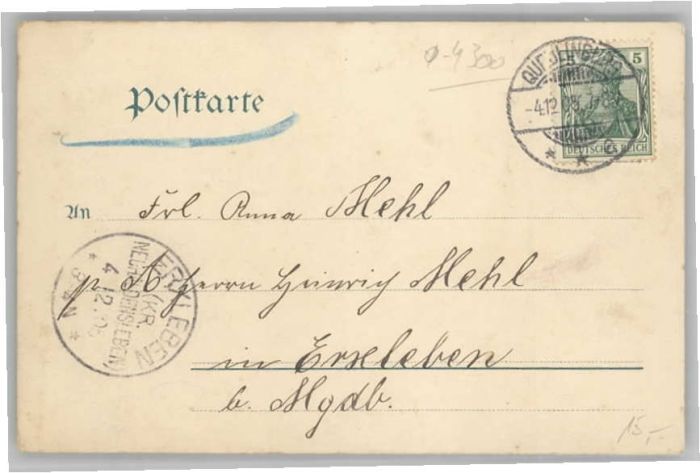 Postkarte
5
DEUTSCHES REICH
QUEDLINBURG
c
An Frl. Anna Mehl
p. A. Herrn Heinrich Mehl
in Erxleben
b. Mgdb.
ERXLEBEN
(KR.
NEUHALDENSLEBEN)
4.12.05
15,-